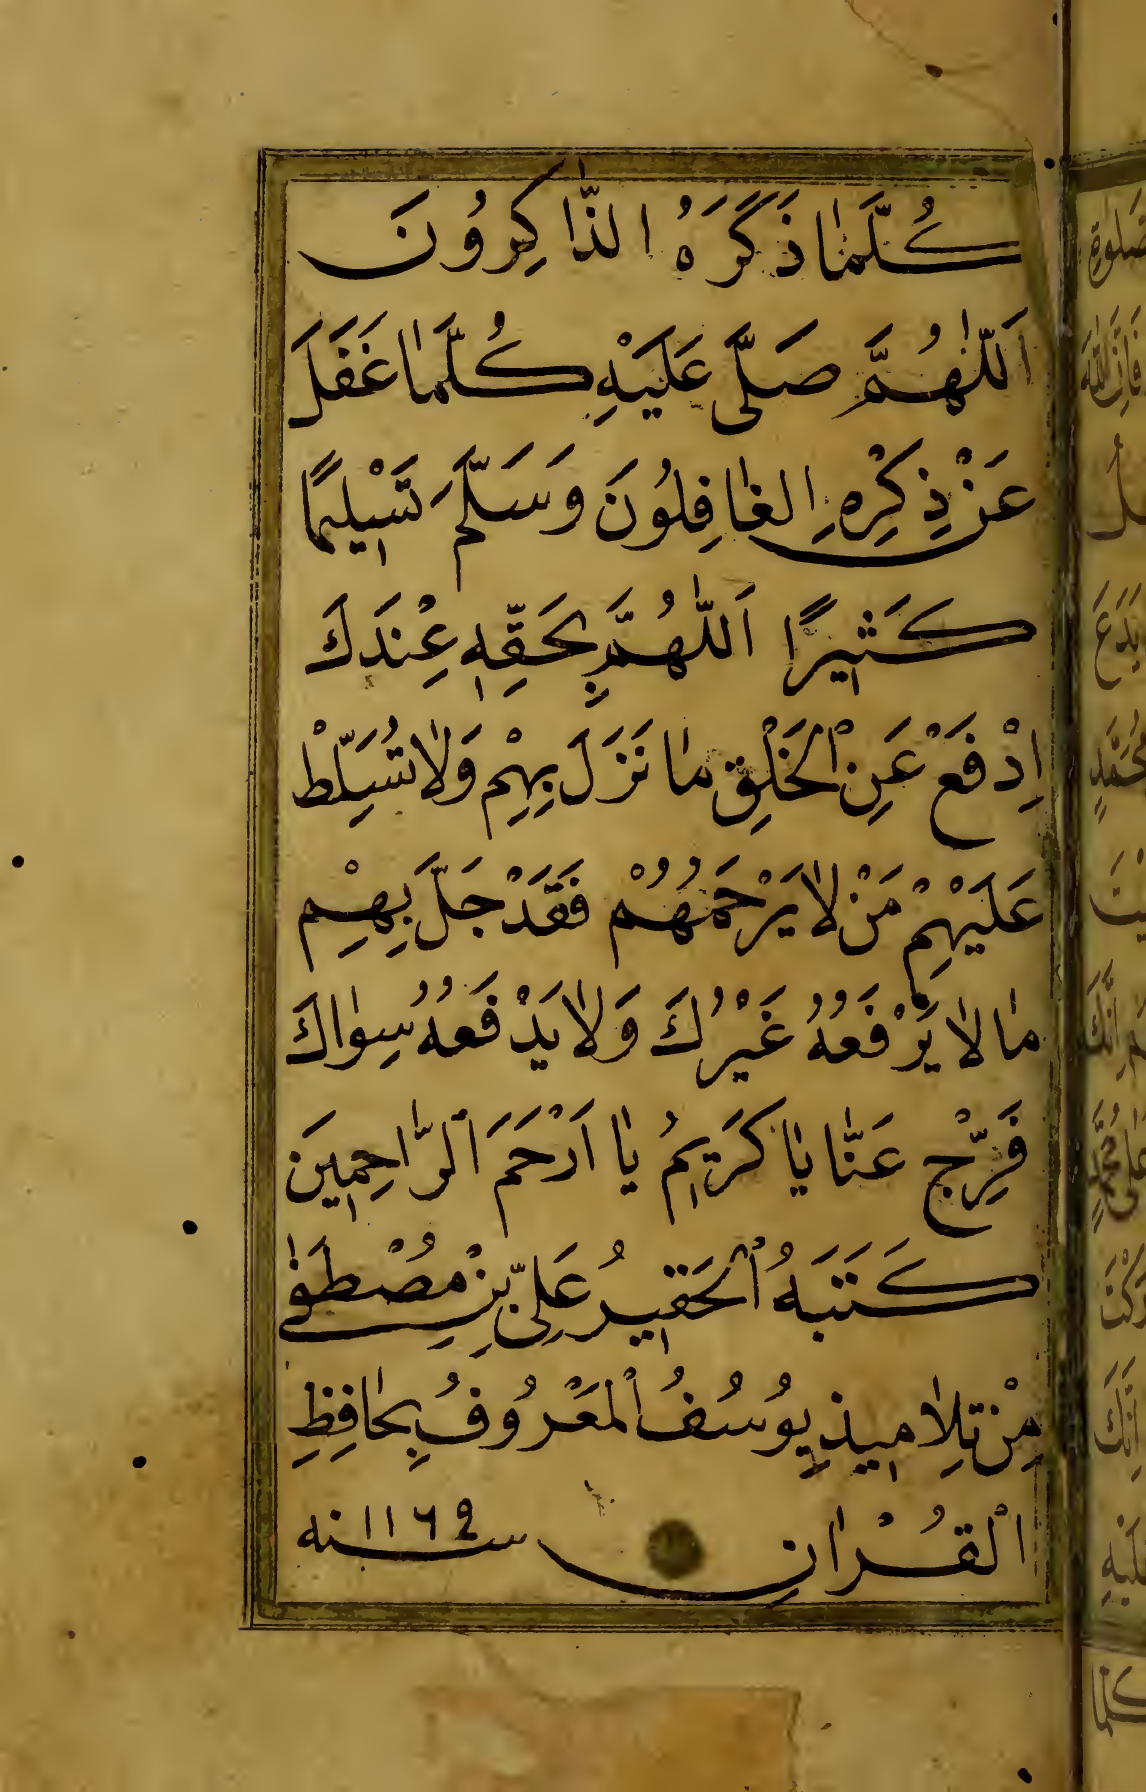 كُلَّمَا ذَكَرَهُ الذَّاكِرُونَ
اَللّٰهُمَّ صَلَّى عَلَيْهِ كُلَّمَا غَفَلَ
عَنْ ذِكْرِهِ الغَافِلُونَ وَسَلَّمَ تَسْلِيمًا
كَثِيرًا اَللّٰهُمَّ بِحَقِّهِ عِنْدَكَ
اِدْفَعْ عَنِ الْخَلْقِ مَا نَزَلَ بِهِمْ وَلَا تُسَلِّطْ
عَلَيْهِمْ مَنْ لَا يَرْحَمُهُمْ فَقَدْ جَلَّ بِهِمْ
مَا لَا يَرْفَعُهُ غَيْرُكَ وَلَا يَدْفَعُهُ سِوَاكَ
فَرِّجْ عَنَّا يَا كَرِيمُ يَا اَرْحَمَ الرَّاحِمِينَ
كَتَبَهُ الْحَقِيرُ عَلِيّ بِنْ مُصْطَفٰى
مِنْ تَلَامِيذِ يُوسُفُ الْمَعْرُوفُ بِحَافِظِ
الْقُرْاٰنِ سنه ١١٦٩